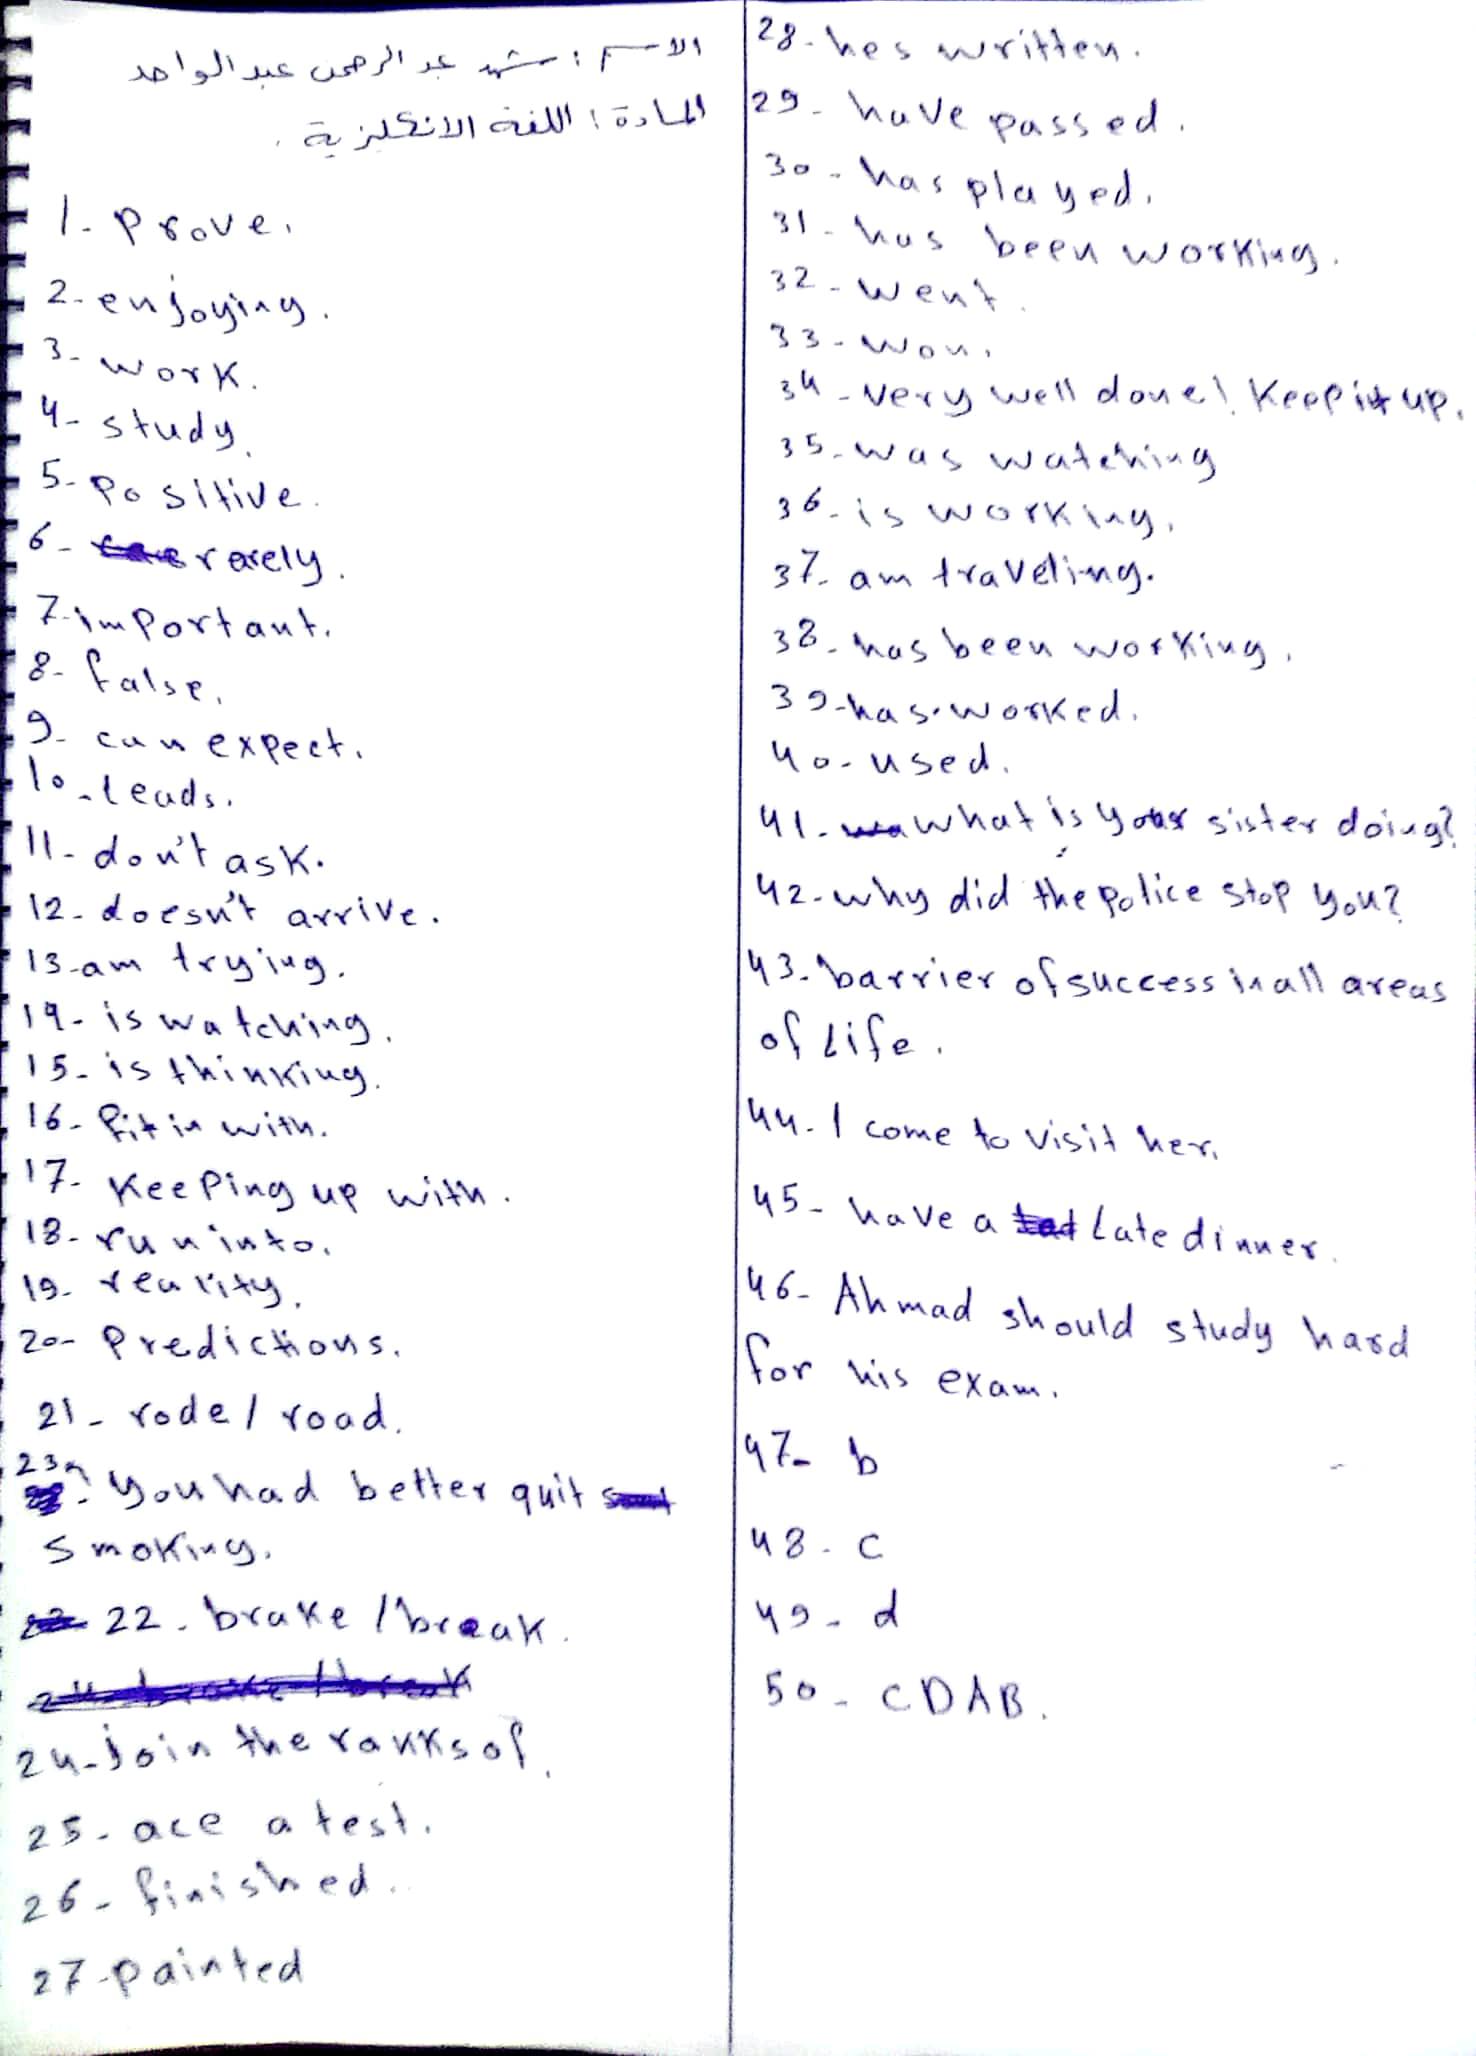 الاسم : شهد عبد الرحمن عبد الواحد
المادة : اللغة الانكليزية .
1- Prove.
2- enjoying.
3- work.
4- study.
5- Positive.
6- rarely.
7- important.
8- false.
9- can expect.
10- leads.
11- don't ask.
12- doesn't arrive.
13- am trying.
14- is watching.
15- is thinking.
16- fit in with.
17- Keeping up with.
18- run into.
19- reality.
20- Predictions.
21- rode / road.
23- You had better quit
smoking.
22. brake / break.
24- Join the ranks of.
25- ace a test.
26- finished.
27- painted
28- hes written.
29- have passed.
30- has played.
31- has been working.
32- went.
33- won.
34- Very well done! Keep it up.
35- was watching
36- is working.
37- am traveling.
38- has been working.
39- has worked.
40- used.
41- what is your sister doing?
42- why did the police stop you?
43- barrier of success in all areas
of Life.
44- I come to visit her.
45- have a Late dinner.
46- Ahmad should study hard
for his exam.
47- b
48- c
49- d
50- CDAB.